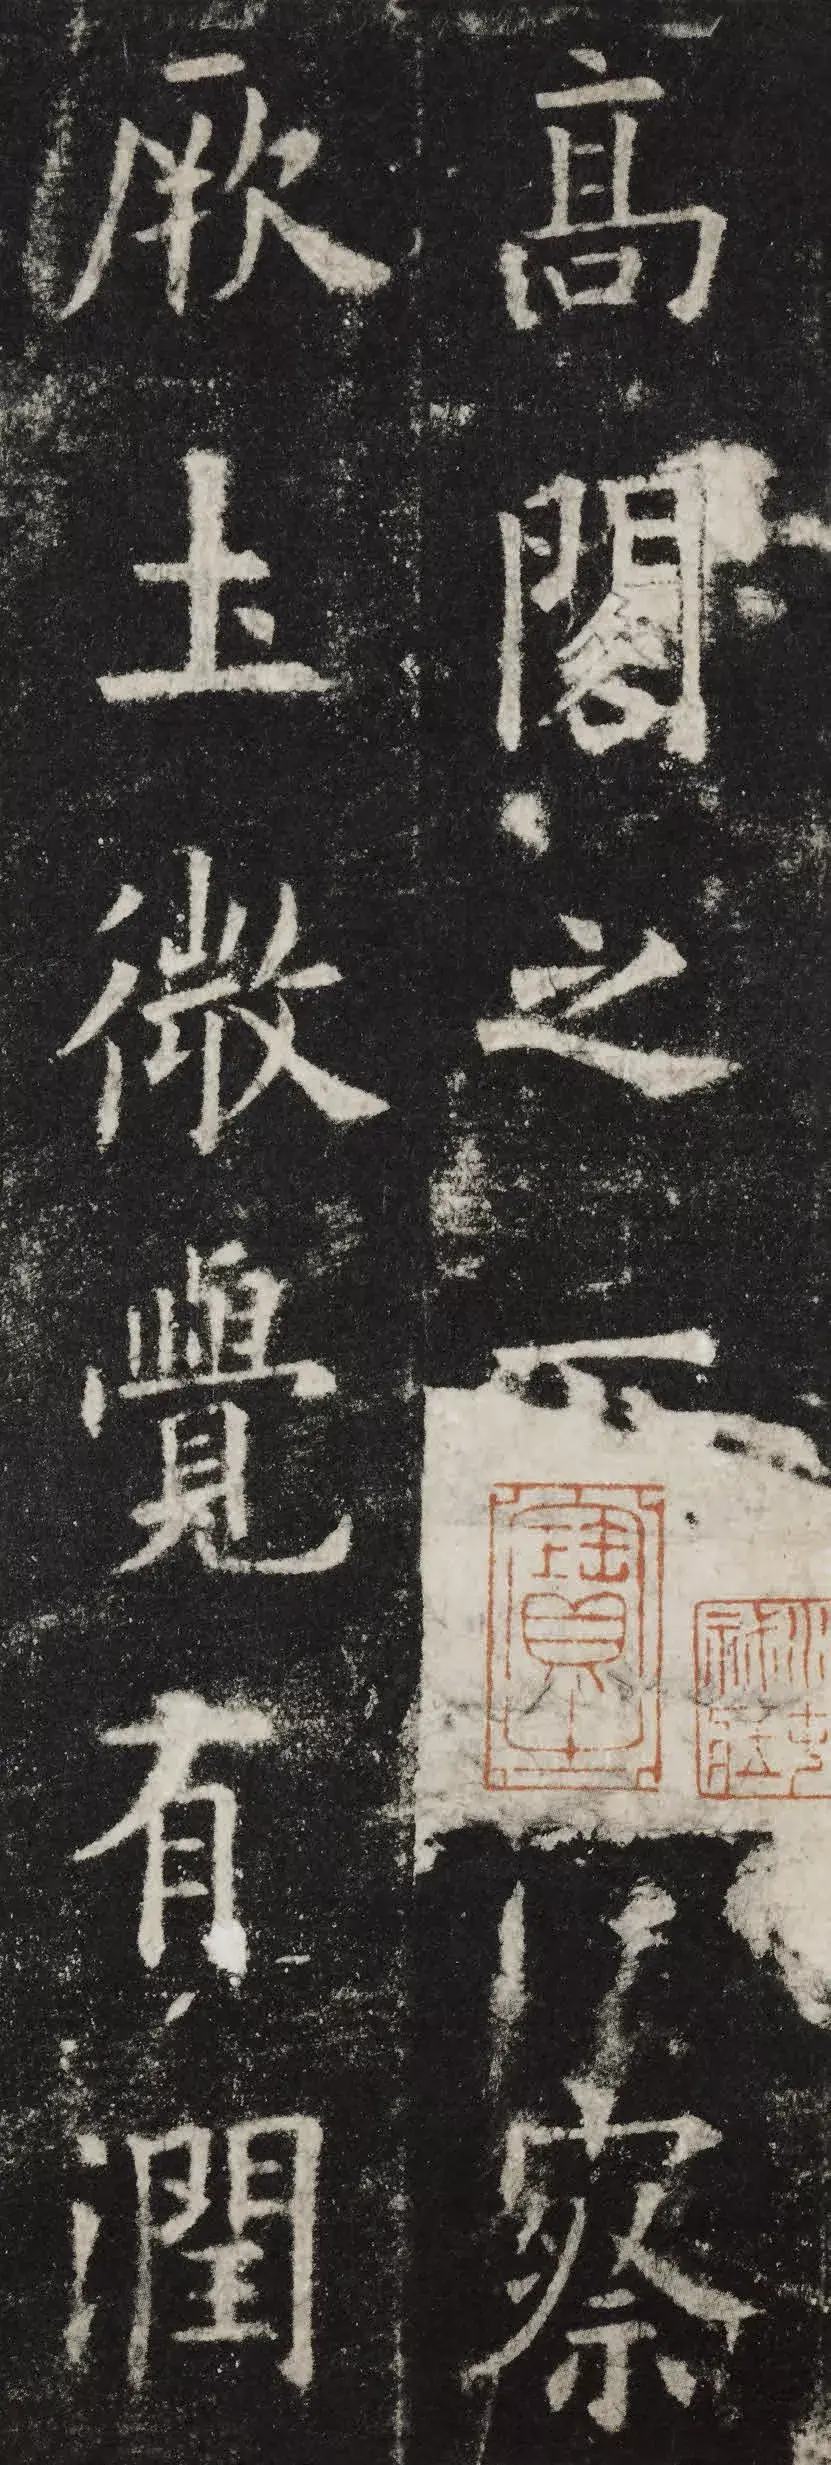 高閣之察
厥土微覺有潤